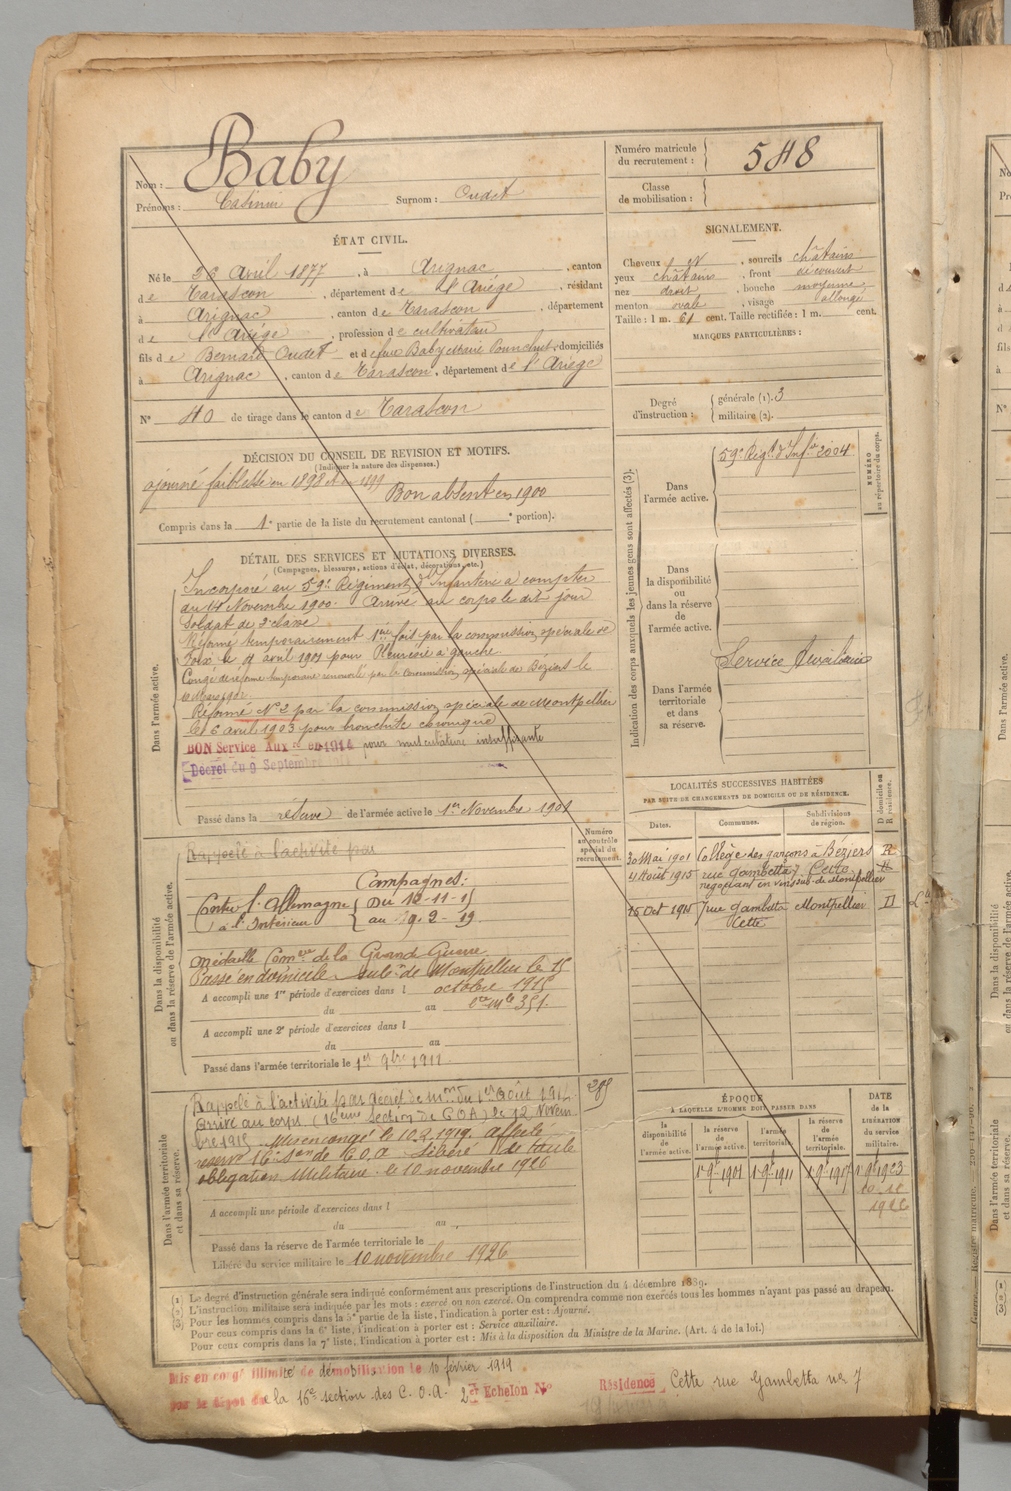 Baby
Nom :
Prénoms : Casimir Surnom : Oudet
Numéro matricule
du recrutement : 548
Classe
de mobilisation :
ÉTAT CIVIL.
Né le 26 Avril 1877, à Arignac, canton
de Tarascon, département de l'Ariège, résidant
à Arignac, canton de Tarascon, département
de l'Ariège, profession de cultivateur
fils de Bernard Oudet et de feue Baby Marie domiciliés
à Arignac, canton de Tarascon, département de l'Ariège
N° 40 de tirage dans le canton de Tarascon
SIGNALEMENT.
Cheveux et, sourcils châtains
yeux châtains, front découvert
nez droit, bouche moyenne
menton ovale, visage allongé
Taille : 1 m. 61 cent. Taille rectifiée : 1 m. cent.
MARQUES PARTICULIÈRES :
Degré
d'instruction :
générale (1). 3
militaire (2).
DÉCISION DU CONSEIL DE REVISION ET MOTIFS.
(Indiquer la nature des dispenses.)
ajourné faiblesse en 1898 et en 1899
Bon absent en 1900
Compris dans la 1e partie de la liste du recrutement cantonal ( e portion).
DÉTAIL DES SERVICES ET MUTATIONS DIVERSES.
(Campagnes, blessures, actions d'éclat, décorations, etc.)
Dans l'armée active.
Incorporé au 59e Régiment d'Infanterie à compter
du 14 Novembre 1900. Arrivé au corps le dit jour
Soldat de 2e classe
Réformé temporairement 1ère fois par la commission spéciale de
Foix le 4 avril 1901 pour Pleurésie à gauche
Congé de réforme temporaire renouvelé par la Commission spéciale de Béziers le
Mars 1902
Réformé N° 2 par la commission spéciale de Montpellier
le 6 avril 1903 pour bronchite chronique
BON Service Aux re en 1914 pour musculature insuffisante
Décret du 9 Septembre 1914
Passé dans la réserve de l'armée active le 1er Novembre 1901
Indication des corps auxquels les jeunes gens sont affectés (3).
Dans
l'armée active.
59e Régt d'Infie 2004
NUMÉRO
au répertoire du corps.
Dans
la disponibilité
ou
dans la réserve
de
l'armée active.
Dans l'armée
territoriale
et dans
sa réserve.
Service Auxiliaire
LOCALITÉS SUCCESSIVES HABITÉES
PAR SUITE DE CHANGEMENTS DE DOMICILE OU DE RÉSIDENCE.
Dates. Communes. Subdivisions
de région. D domicile ou
R résidence.
30 Mai 1901 Collège des garçons à Béziers R
4 Août 1915 rue Gambetta 7 Cette R
négociant en vins sub. de Montpellier
15 Oct 1915 7 rue Gambetta Montpellier D
Cette
Dans la disponibilité
ou dans la réserve de l'armée active.
Numéro
au contrôle
spécial du
recrutement.
Rappelé à l'activité par
Campagnes:
Contre l'Allemagne Du 12-11-15
à l'Intérieur au 9-2-19
Médaille Comve de la Grande Guerre
Passé en domicile subon de Montpellier le 15
octobre 1915
A accompli une 1re période d'exercices dans l
du au
351.
A accompli une 2e période d'exercices dans l
du au
Passé dans l'armée territoriale le 1er 9bre 1911
Dans l'armée territoriale
et dans sa réserve.
Rappelé à l'activité par décret de mon du 1er Août 1914
Arrivé au corps (16ème Section de COA) le 12 Novem
bre 1915. Mis en congé le 10.2.1919. Affecté
réserve 16e Son de C.O.A. Libéré de toute
obligation Militaire le 10 novembre 1926
A accompli une période d'exercices dans l
du au
Passé dans la réserve de l'armée territoriale le
Libéré du service militaire le 10 novembre 1926
ÉPOQUE
À LAQUELLE L'HOMME DOIT PASSER DANS
DATE
de la
LIBÉRATION
du service
militaire.
la
disponibilité
de
l'armée active.
la réserve
de
l'armée active.
l'armée
territoriale.
la réserve
de
l'armée
territoriale.
1er 9bre 1901 1er 9bre 1911 1er 9bre 1917 1er 9bre 1923
1926
(1) Le degré d'instruction générale sera indiqué conformément aux prescriptions de l'instruction du 4 décembre 1889.
(2) L'instruction militaire sera indiquée par les mots : exercé ou non exercé. On comprendra comme non exercés tous les hommes n'ayant pas passé au drapeau.
(3) Pour les hommes compris dans la 5e partie de la liste, l'indication à porter est : Ajourné.
Pour ceux compris dans la 6e liste, l'indication à porter est : Service auxiliaire.
Pour ceux compris dans la 7e liste, l'indication à porter est : Mis à la disposition du Ministre de la Marine. (Art. 4 de la loi.)
Mis en congé illimité de démobilisation le 10 février 1919
par le dépôt de la 16e section des C.O.A. 2e Echelon N°
Résidence Cette rue Gambetta no 7